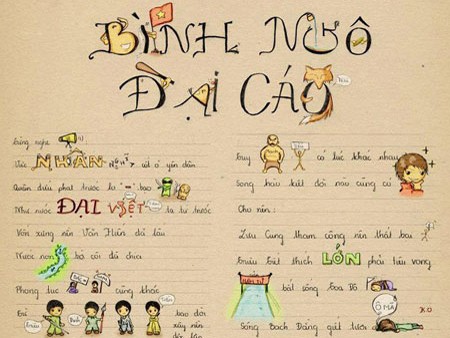 BÌNH NGÔ
ĐẠI CÁO
Từng nghe
Việc NHÂN NGHĨA cốt ở yên dân
Quân điếu phạt trước lo bạo
Như nước ĐẠI VIỆT ta từ trước
Vốn xưng nền Văn Hiến đã lâu
Nước non bờ cõi đã chia
Phong tục cũng khác
Từ Triệu Đinh Lý Trần bao đời
xây nền
độc lập
Tuy có lúc khác nhau
Song hào kiệt đời nào cũng có
Cho nên:
Lưu Cung tham công nên thất bại
Triệu Tiết thích LỚN phải tiêu vong
bắt sống Toa Đô
Sông Bạch Đằng giết tươi Ô MÃ
K.O